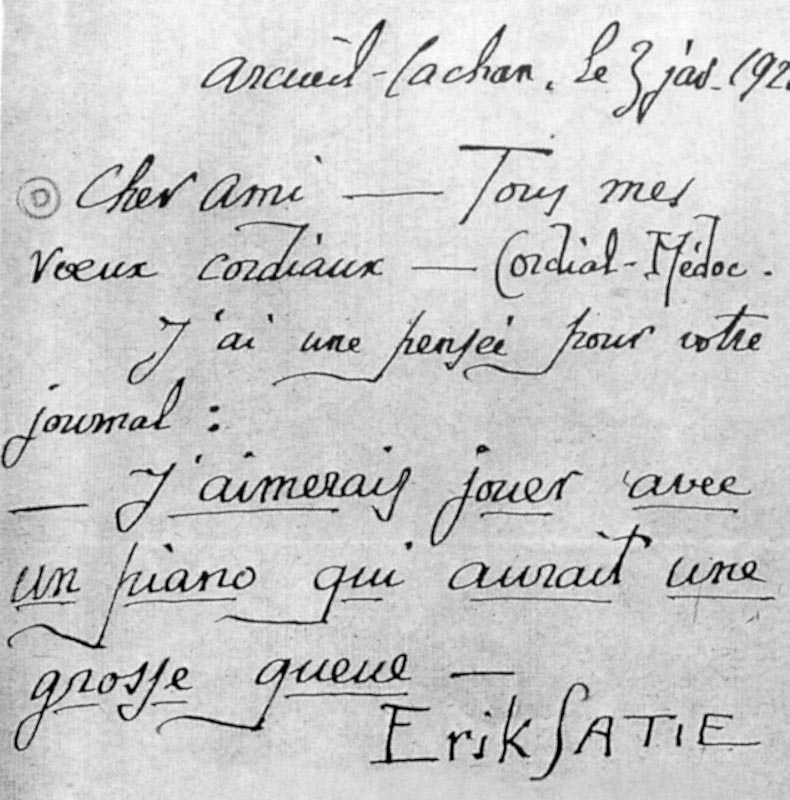 Arcueil-Cachan, le 3 jan. 192
D Cher Ami — Tous mes
vœux cordiaux — Cordial-Médoc.
J'ai une pensée pour votre
journal :
— J'aimerais jouer avec
un piano qui aurait une
grosse queue —
Erik SATIE